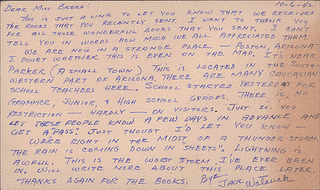 DEAR MISS BREED 10-6-42
THIS IS JUST A LINE TO LET YOU KNOW THAT WE RECEIVED
THE BOOKS THAT YOU RECENTLY SENT. I WANT TO THANK YOU
FOR ALL THOSE WONDERFUL BOOKS THAT YOU SENT. I CAN'T
TELL YOU IN WORDS HOW MUCH WE ALL APPRECIATED THEM.
WE ARE NOW IN A STRANGE PLACE - POSTON, ARIZONA
I DOUBT WHETHER THIS IS EVEN ON THE MAP. IT IS NEAR
PARKER (A SMALL TOWN) THIS IS LOCATED IN THE SOUTH-
WESTERN PART OF ARIZONA. THERE ARE MANY CAUCASIAN
SCHOOL TEACHERS HERE. SCHOOL STARTED YESTERDAY FOR
GRAMMER, JUNIOR, & HIGH SCHOOL GROUPS. THERE IS NO
RESTRICTION - HARDLY - ON VISITORS. JUST SO YOU
LET THESE PEOPLE KNOW A FEW DAYS IN ADVANCE AND
GET A PASS. JUST THOUGHT I'D LET YOU KNOW -
WE'RE RIGHT IN THE MIDST OF A THUNDER STORM.
THE RAIN IS COMING DOWN IN "SHEETS". LIGHTNING IS
AWFUL. THIS IS THE WORST STORM I'VE EVER BEEN
IN. WILL WRITE MORE ABOUT THIS PLACE LATER.
THANKS AGAIN FOR THE BOOKS, BYE, JACK